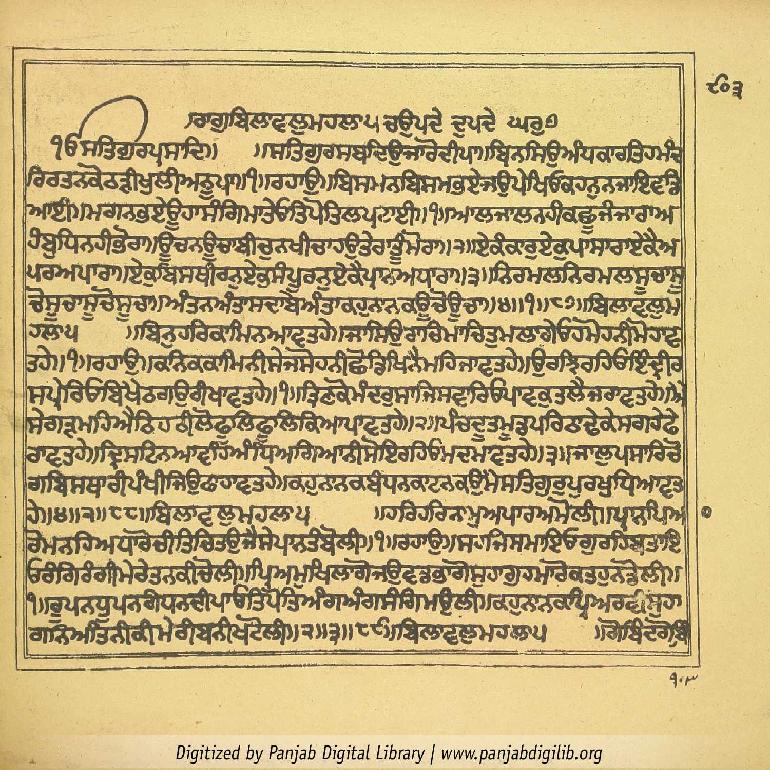 ੯੦੩
ਰਾਗੁਬਿਲਾਵਲੁਮਹਲਾ੫ ਚਉਪਦੇ ਦੁਪਦੇ ਘਰੁ੭
ੴਸਤਿਗੁਰਪ੍ਰਸਾਦਿ॥ ॥ਸਤਿਗੁਰਸਬਦਿਉਜਾਰੋਦੀਪਾ॥ਬਿਨਸਿਓਅੰਧਕਾਰਤਿਹਮੰਦ
ਰਿਰਤਨਕੋਠੜੀਖੁਲੀਅਨੂਪਾ॥੧॥ਰਹਾਉ॥ਬਿਸਮਨਬਿਸਮਭਏਜਉਪੇਖਿਓਕਹਨੁਨਜਾਇਵਡਿ
ਆਈ॥ਮਗਨਭਏਊਹਾਸੰਗਿਮਾਤੇਓਤਿਪੋਤਿਲਪਟਾਈ॥੧॥ਆਲਜਾਲਨਹੀਕਛੂਜੰਜਾਰਾਅ
ਹੰਬੁਧਿਨਹੀਭੋਰਾ॥ਊਚਨਊਚਾਬੀਚੁਨਖੀਚਾਹਉਤੇਰਾਤੂੰਮੋਰਾ॥੨॥ਏਕੰਕਾਰੁਏਕੁਪਾਸਾਰਾਏਕੈਅ
ਪਰਅਪਾਰਾ॥ਏਕੁਬਿਸਥੀਰਨੁਏਕੁਸੰਪੂਰਨੁਏਕੈਪ੍ਰਾਨਅਧਾਰਾ॥੩॥ਨਿਰਮਲਨਿਰਮਲਸੂਚਾਸੂ
ਚੋਸੂਚਾਸੂਚੋਸੂਚਾ॥ਅੰਤਨਅੰਤਾਸਦਾਬੇਅੰਤਾਕਹੁਨਾਨਕਊਚੋਊਚਾ॥੪॥੧॥੮੭॥ਬਿਲਾਵਲੁਮ
ਹਲਾ੫ ॥ਬਿਨੁਹਰਿਕਾਮਿਨਆਵਤਹੇ॥ਜਾਸਿਉਰਾਚਿਮਾਚਿਤੁਮਲਾਗੇਓਹਮੋਹਨੀਮੋਹਾਵ
ਤਹੇ॥੧॥ਰਹਾਉ॥ਕਨਿਕਕਾਮਿਨੀਸੇਜਸੋਹਨੀਛੋਡਿਖਿਨੈਮਹਿਜਾਵਤਹੇ॥ਉਰਝਿਰਹਿਓਇੰਦ੍ਰੀਰ
ਸਪ੍ਰੇਰਿਓਬਿਖੈਠਗਉਰੀਖਾਵਤਹੇ॥੧॥ਤ੍ਰਿਣਕੋਮੰਦਰੁਸਾਜਿਸਵਾਰਿਓਪਾਵਕੁਤਲੈਜਰਾਵਤਹੇ॥ਐ
ਸੇਗੜਮਹਿਐਠਿਹਠੀਲੋਫੂਲਿਫੂਲਿਕਿਆਪਾਵਤਹੇ॥੨॥ਪੰਚਦੂਤਮੂਡਪਰਿਠਾਢੇਕੇਸਗਹੇਫੇ
ਰਾਵਤਹੇ॥ਦ੍ਰਿਸਟਿਨਆਵਹਿਅੰਧਅਗਿਆਨੀਸੋਇਰਹਿਓਮਦਮਾਵਤਹੇ॥੩॥ਜਾਲੁਪਸਾਰਿਚੋ
ਗਬਿਸਥਾਰੀਪੰਖੀਜਿਉਫਾਹਾਵਤਹੇ॥ਕਹੁਨਾਨਕਬੰਧਨਕਾਟਨਕਉਮੈਸਤਿਗੁਰੁਪੁਰਖੁਧਿਆਵਤ
ਹੇ॥੪॥੨॥੮੮॥ਬਿਲਾਵਲੁਮਹਲਾ੫ ॥ਹਰਿਹਰਿਨਾਮੁਅਪਾਰਅਮੋਲੀ॥ਪ੍ਰਾਨਪਿਆ
ਰੋਮਨਹਿਅਧਾਰੋਚੀਤਿਚਿਤਵਉਜੈਸੇਪਾਨਤੰਬੋਲੀ॥੧॥ਰਹਾਉ॥ਸਹਜਿਸਮਾਇਓਗੁਰਹਿਬਤਾਇ
ਓਰੰਗਿਰੰਗੀਮੇਰੇਤਨਕੀਚੋਲੀ॥ਪ੍ਰਿਅਮੁਖਿਲਾਗੋਜਉਵਡਭਾਗੋਸੁਹਾਗੁਹਮਾਰੋਕਤਹੁਨਡੋਲੀ॥
੧॥ਰੂਪਨਧੂਪਨਗੰਧਨਦੀਪਾਓਤਿਪੋਤਿਅੰਗਅੰਗਸੰਗਿਮਉਲੀ॥ਕਹੁਨਾਨਕਪ੍ਰਿਅਰਵੀਸੁਹਾ
ਗਨਿਅਤਿਨੀਕੀਮੇਰੀਬਨੀਖਟੋਲੀ॥੨॥੩॥੮੯॥ਬਿਲਾਵਲੁਮਹਲਾ੫ ॥ਗੋਬਿੰਦਗੋਬਿੰ
Digitized by Panjab Digital Library | www.panjabdigilib.org